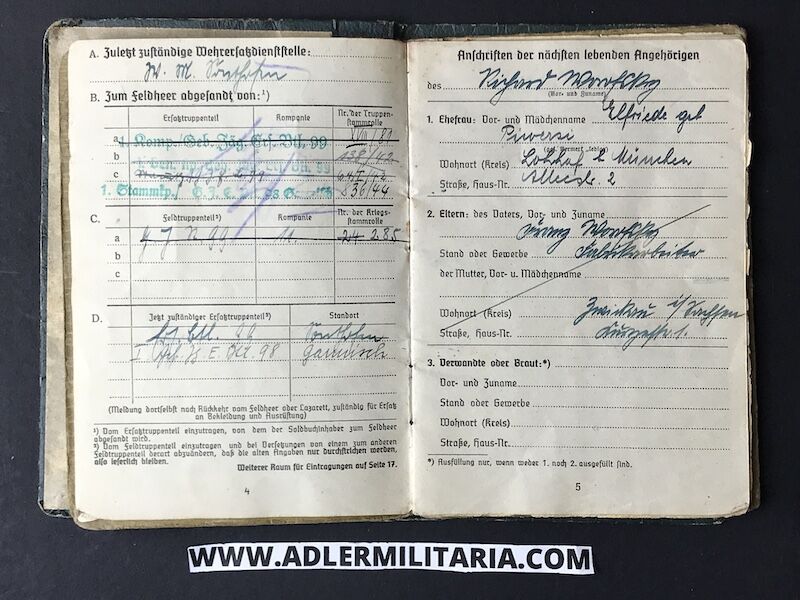 A. Zuletzt zuständige Wehrersatzdienststelle:
W. M. Sonthofen
B. Zum Feldheer abgesandt von:¹)
Ersatztruppenteil Kompanie Nr. der Truppenstammrolle
a 1. Komp. Geb. Jäg. Ers. Btl. 99
b
c
1. Stammkp. 836/44
C. Feldtruppenteil²) Kompanie Nr. der Kriegsstammrolle
a 99 11. 24 285
b
c
D. Jetzt zuständiger Ersatztruppenteil²) Standort
Sonthofen
98 Garmisch
(Meldung dortselbst nach Rückkehr vom Feldheer oder Lazarett, zuständig für Ersatz
an Bekleidung und Ausrüstung)
¹) Vom Ersatztruppenteil einzutragen, von dem der Soldbuchinhaber zum Feldheer
abgesandt wird.
²) Vom Feldtruppenteil einzutragen und bei Versetzungen von einem zum anderen
Feldtruppenteil derart abzuändern, daß die alten Angaben nur durchstrichen werden,
also leserlich bleiben.
Weiterer Raum für Eintragungen auf Seite 17.
4
Anschriften der nächsten lebenden Angehörigen
des Richard
(Vor- und Zuname)
1. Ehefrau: Vor- und Mädchenname Elfriede geb
Wohnort (Kreis) Lohhof b München
Straße, Haus-Nr. 2
2. Eltern: des Vaters, Vor- und Zuname
Franz
Stand oder Gewerbe Fabrikarbeiter
der Mutter, Vor- u. Mädchenname
Wohnort (Kreis) Zwickau i/Sachsen
Straße, Haus-Nr. 1.
3. Verwandte oder Braut:*)
Vor- und Zuname
Stand oder Gewerbe
Wohnort (Kreis)
Straße, Haus-Nr.
*) Ausfüllung nur, wenn weder 1. noch 2. ausgefüllt sind.
5
WWW.ADLERMILITARIA.COM